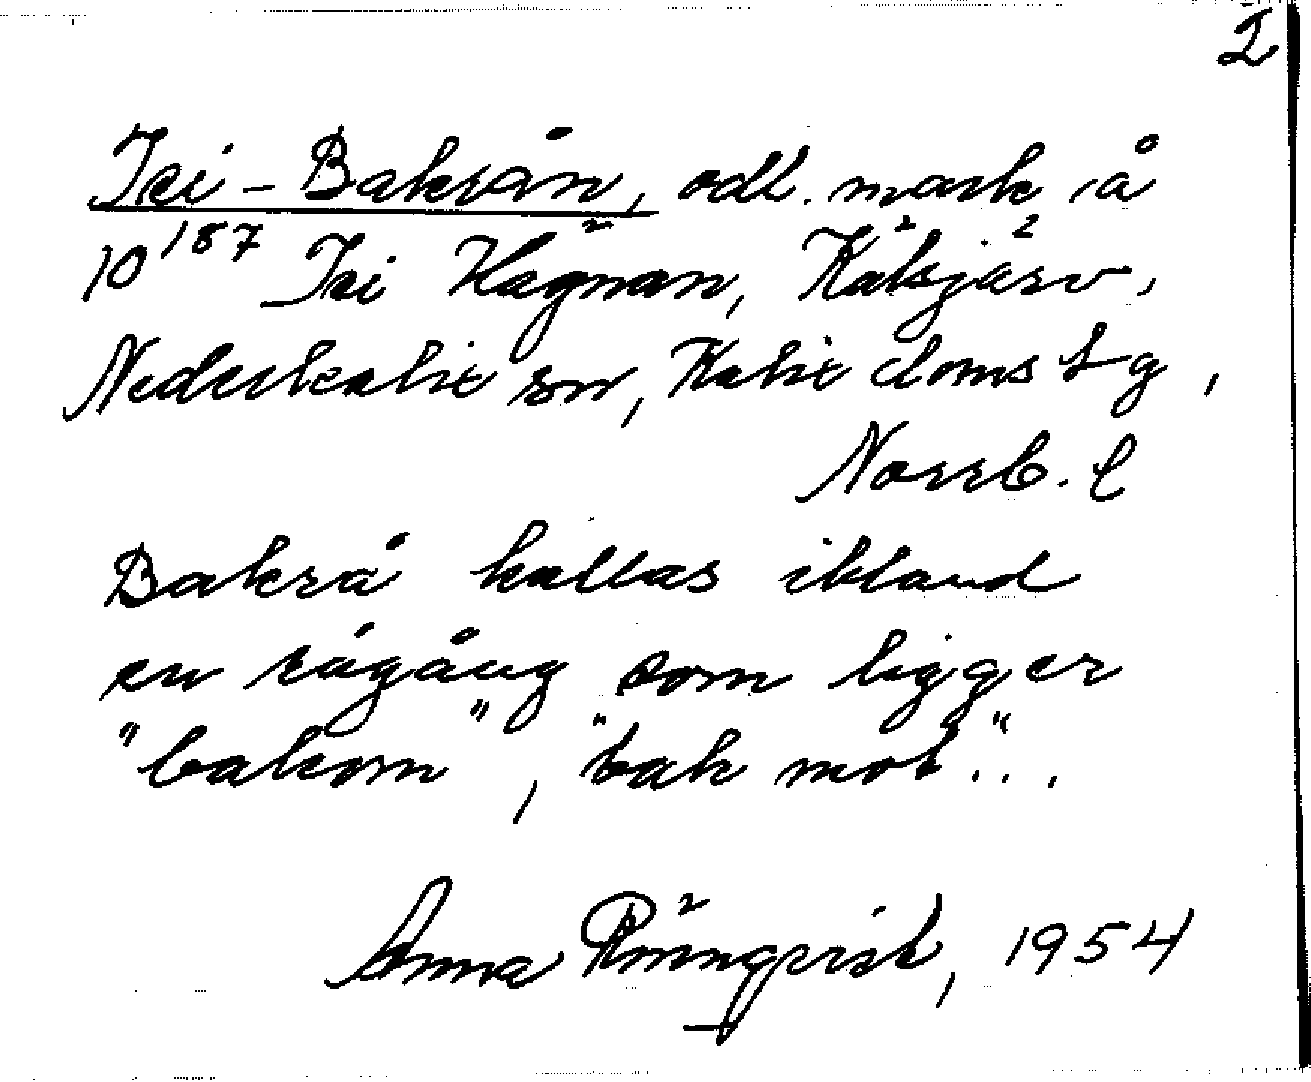 2
Isi-Bakrån, odl. mark, å
10¹⁸⁷ Isi Hägnan, Kätsjärv,
Nederkalix sn, Kalix domstg,
Norrb. l
Bakrå kallas ibland
en rågång som ligger
"bakom", "bak mot"...
Anna Rönnqvist, 1954